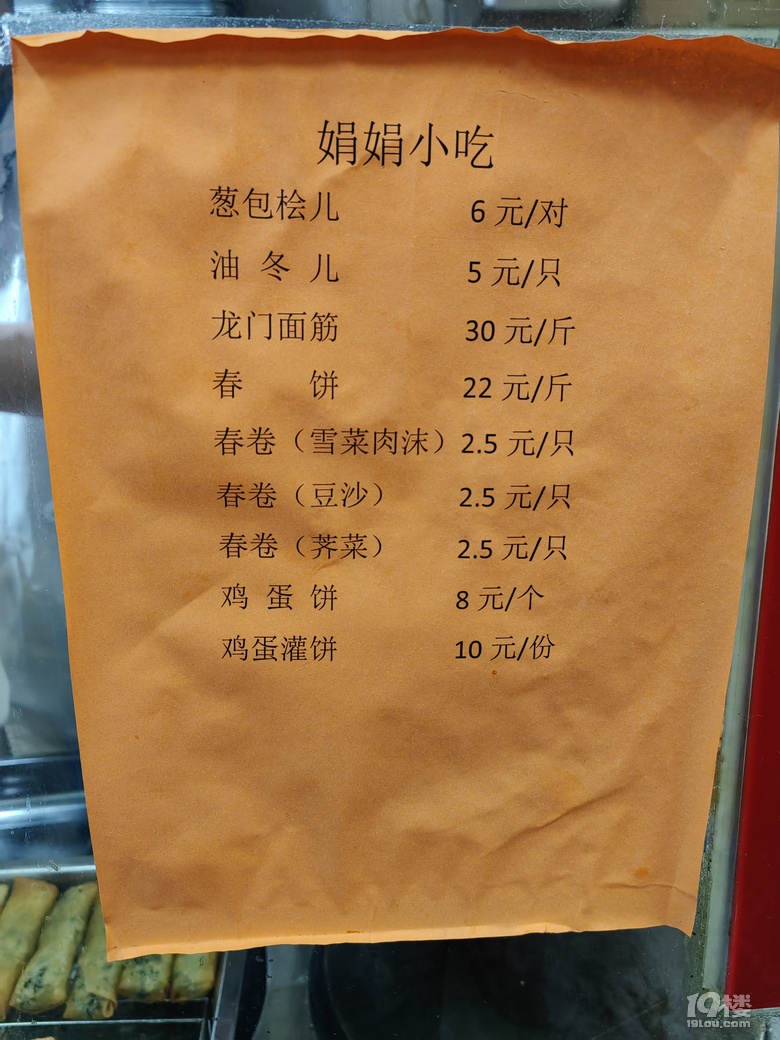 娟娟小吃
葱包桧儿 6 元/对
油 冬 儿 5 元/只
龙门面筋 30 元/斤
春 饼 22 元/斤
春卷（雪菜肉沫）2.5 元/只
春卷（豆沙） 2.5 元/只
春卷（荠菜） 2.5 元/只
鸡 蛋 饼 8 元/个
鸡蛋灌饼 10 元/份
19楼
19lou.com